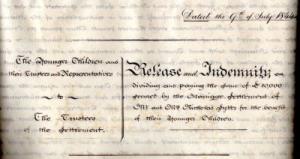 Dated the 9th of July 1844
The Younger Children and
their Trustees and Representatives
to
The Trustees
of the Settlement.
Release and Indemnity on
dividing and paying the sum of £10,000
secured by the Marriage Settlement of
Mr and Mrs for the benefit
of their Younger Children.